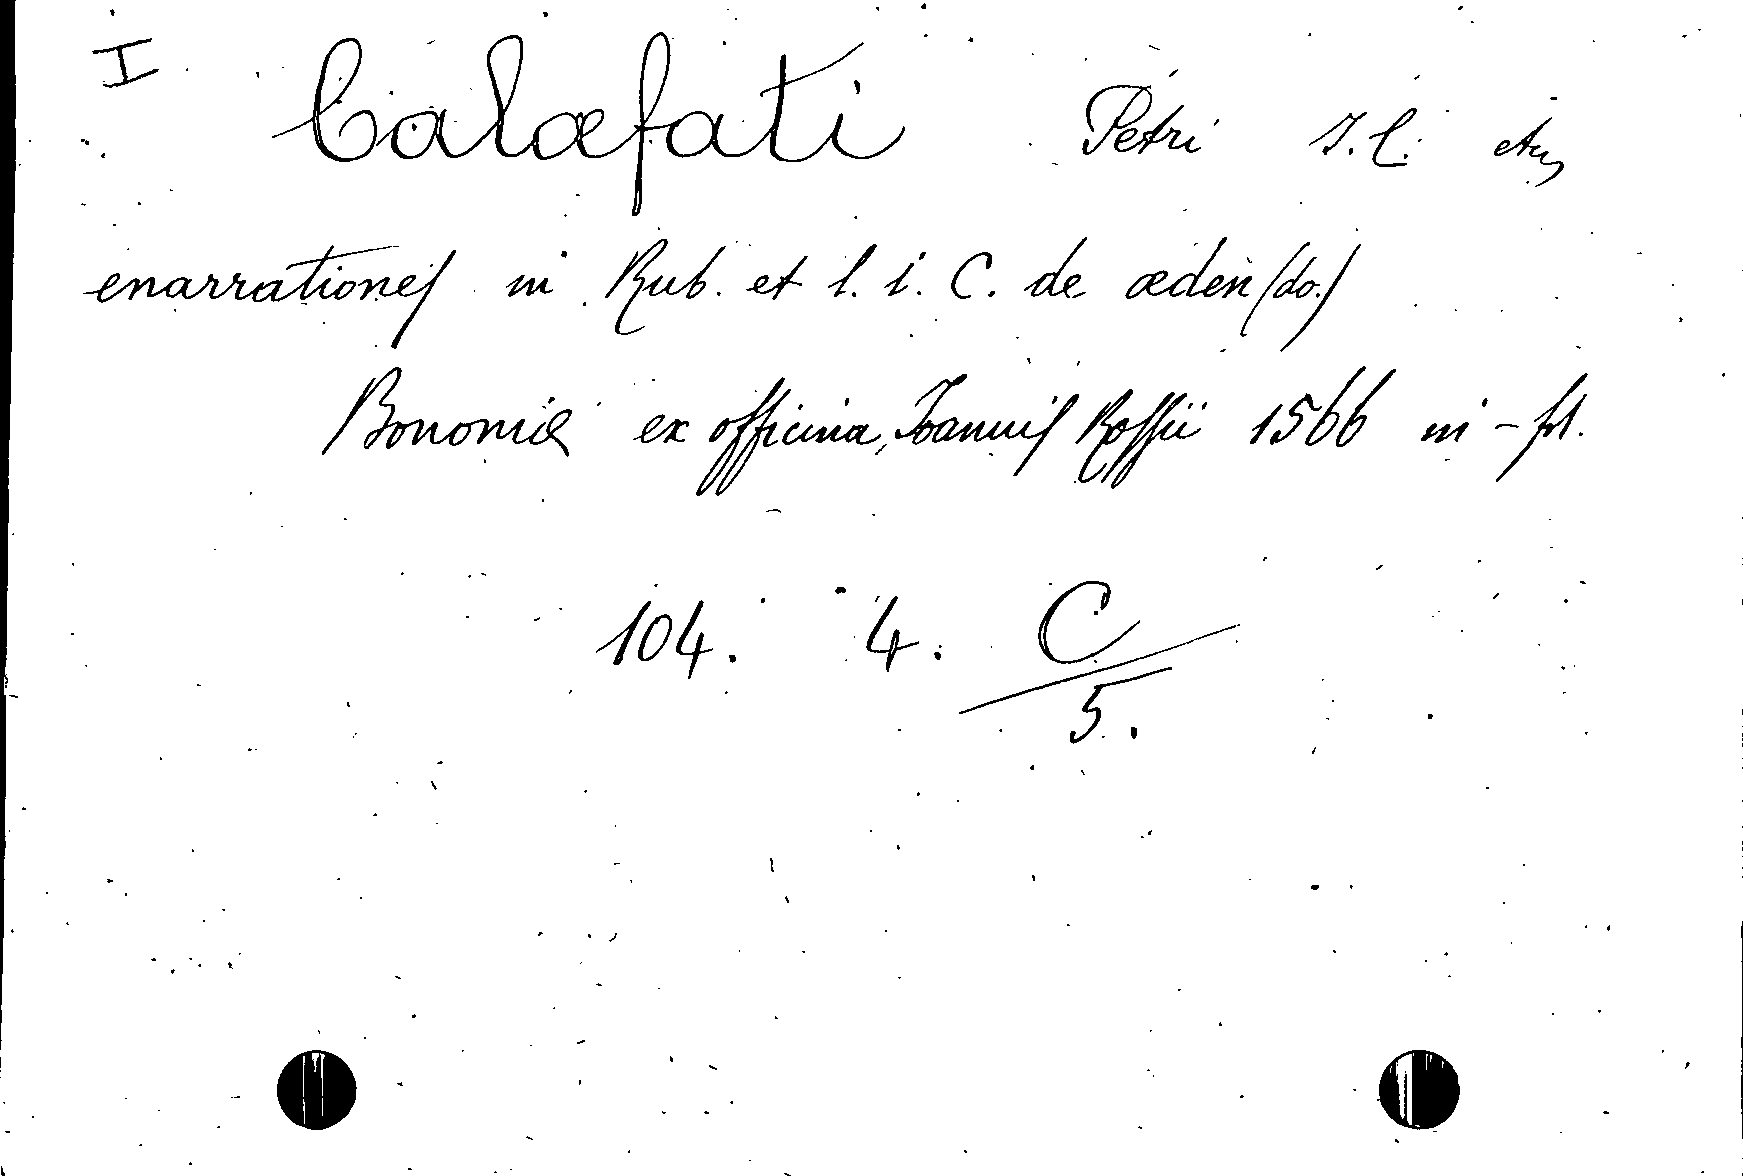 I Calæfati Petri J.C. etc,
enarrationes in Rub. et l. i. C. de æden (do.)
Bononiæ ex officina Joannis Rossii 1566 in-fol.
104. 4. C/5.